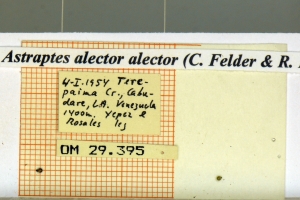 Astraptes alector alector (C. Felder & R.
4-I.1954 Tere-
paima Cr., Cabu-
dare, LA. Venezuela
1400m. Yepez &
Rosales leg
OM 29.395